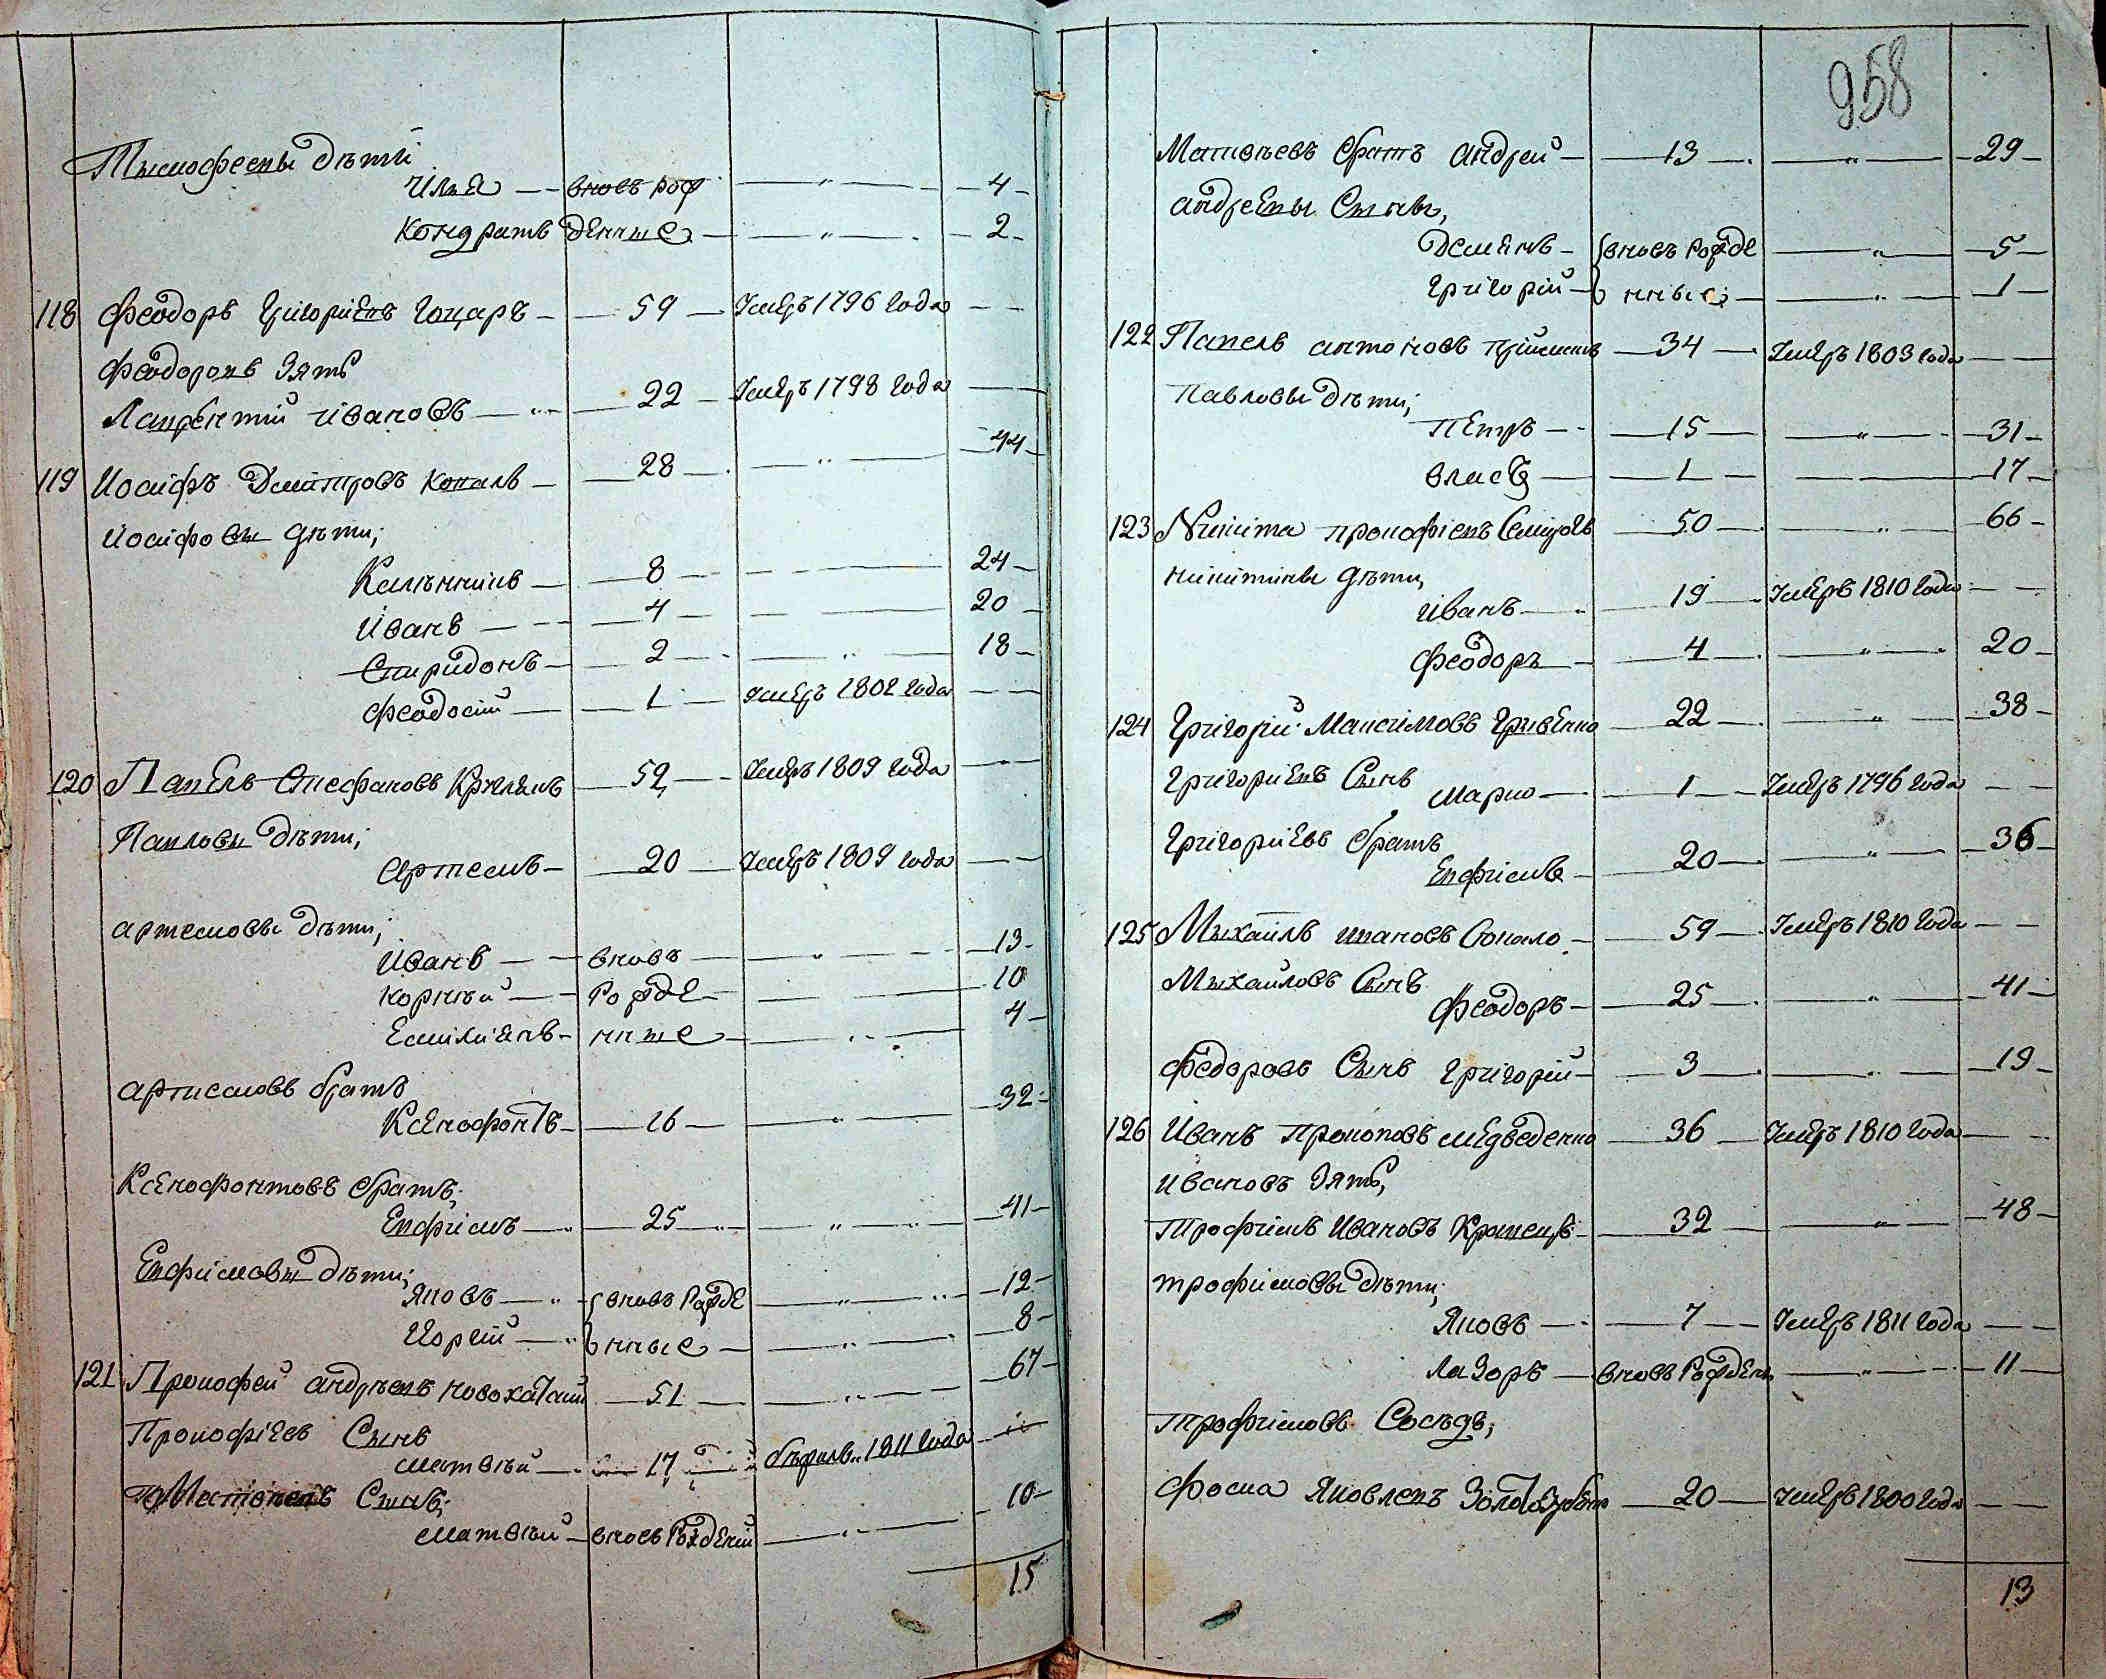 Тымофеевы дѣти
Илья — вновь рож — „ — 4
Кондратъ денные — „ — 2
118 Феодоръ Григориевъ Гонцаръ — 59 — Умеръ 1796 года — —
Феодоровъ Зять
Лаврентий Ивановъ — 22 — Умеръ 1798 года — —
119 Иосифъ Дмитровъ Коваль — 28 — „ — 44
Иосифовы дѣти;
Калѣнникъ — 8 — — 24
Иванъ — 4 — — 20
Спиридонъ — 2 — „ — 18
Феодосий — 1 — Умеръ 1802 года — —
120 Павелъ Стефановъ — 52 — Умеръ 1809 года — —
Павловы Дѣти;
Артемъ — 20 — Умеръ 1809 года — —
Артемовы дѣти;
Иванъ — вновь — „ — 13
Корнѣй — рожде — — 10
Емилиянъ — нные — „ — 4
Артемовъ братъ
Ксенофонтъ — 16 — „ — 32
Ксенофонтовъ братъ;
Евфимъ — 25 — „ — 41
Евфимовы дѣти;
Яковъ — вновь рожде — „ — 12
Иорий — нные — „ — 8
121 Прокофей Андрѣевъ Новохатний — 51 — „ — 67
Прокофиевъ Сынъ
Матвѣй — 17 — 1811 года —
Сынъ;
Матвѣй — вновь рожденый — „ — 10
15
958
Матвѣевъ братъ Андрей — 13 — „ — 29
Андреевы Сыны,
Демянъ — вновь рожде — „ — 5
Григорий — нные; — „ — 1
122 Павелъ Антоновъ — 34 — Умеръ 1803 года — —
Павловы дѣти;
Петръ — 15 — „ — 31
Власъ — 1 — — 17
123 Никита Прокофиевъ — 50 — „ — 66
Никитины дѣти,
Иванъ — 19 — Умеръ 1810 года — —
Феодоръ — 4 — „ — 20
124 Григорий Максимовъ Гривенко — 22 — „ — 38
Григориевъ Сынъ
Марко — 1 — Умеръ 1796 года — —
Григориевъ братъ
Евфимъ — 20 — „ — 36
125 Мыхайлъ Ивановъ — 59 — Умеръ 1810 года — —
Мыхайловъ Сынъ
Феодоръ — 25 — „ — 41
Федоровъ Сынъ Григорий — 3 — „ — 19
126 Иванъ Прокоповъ Медведенко — 36 — Умеръ 1810 года — —
Ивановъ Зять,
Трофимъ Ивановъ Кравецъ — 32 — „ — 48
Трофимовы дѣти;
Яковъ — 7 — Умеръ 1811 года — —
Лазоръ — вновь рожденъ — „ — 11
Трофимовъ Сосѣдъ;
Фома Яковлевъ — 20 — Умеръ 1800 года — —
13